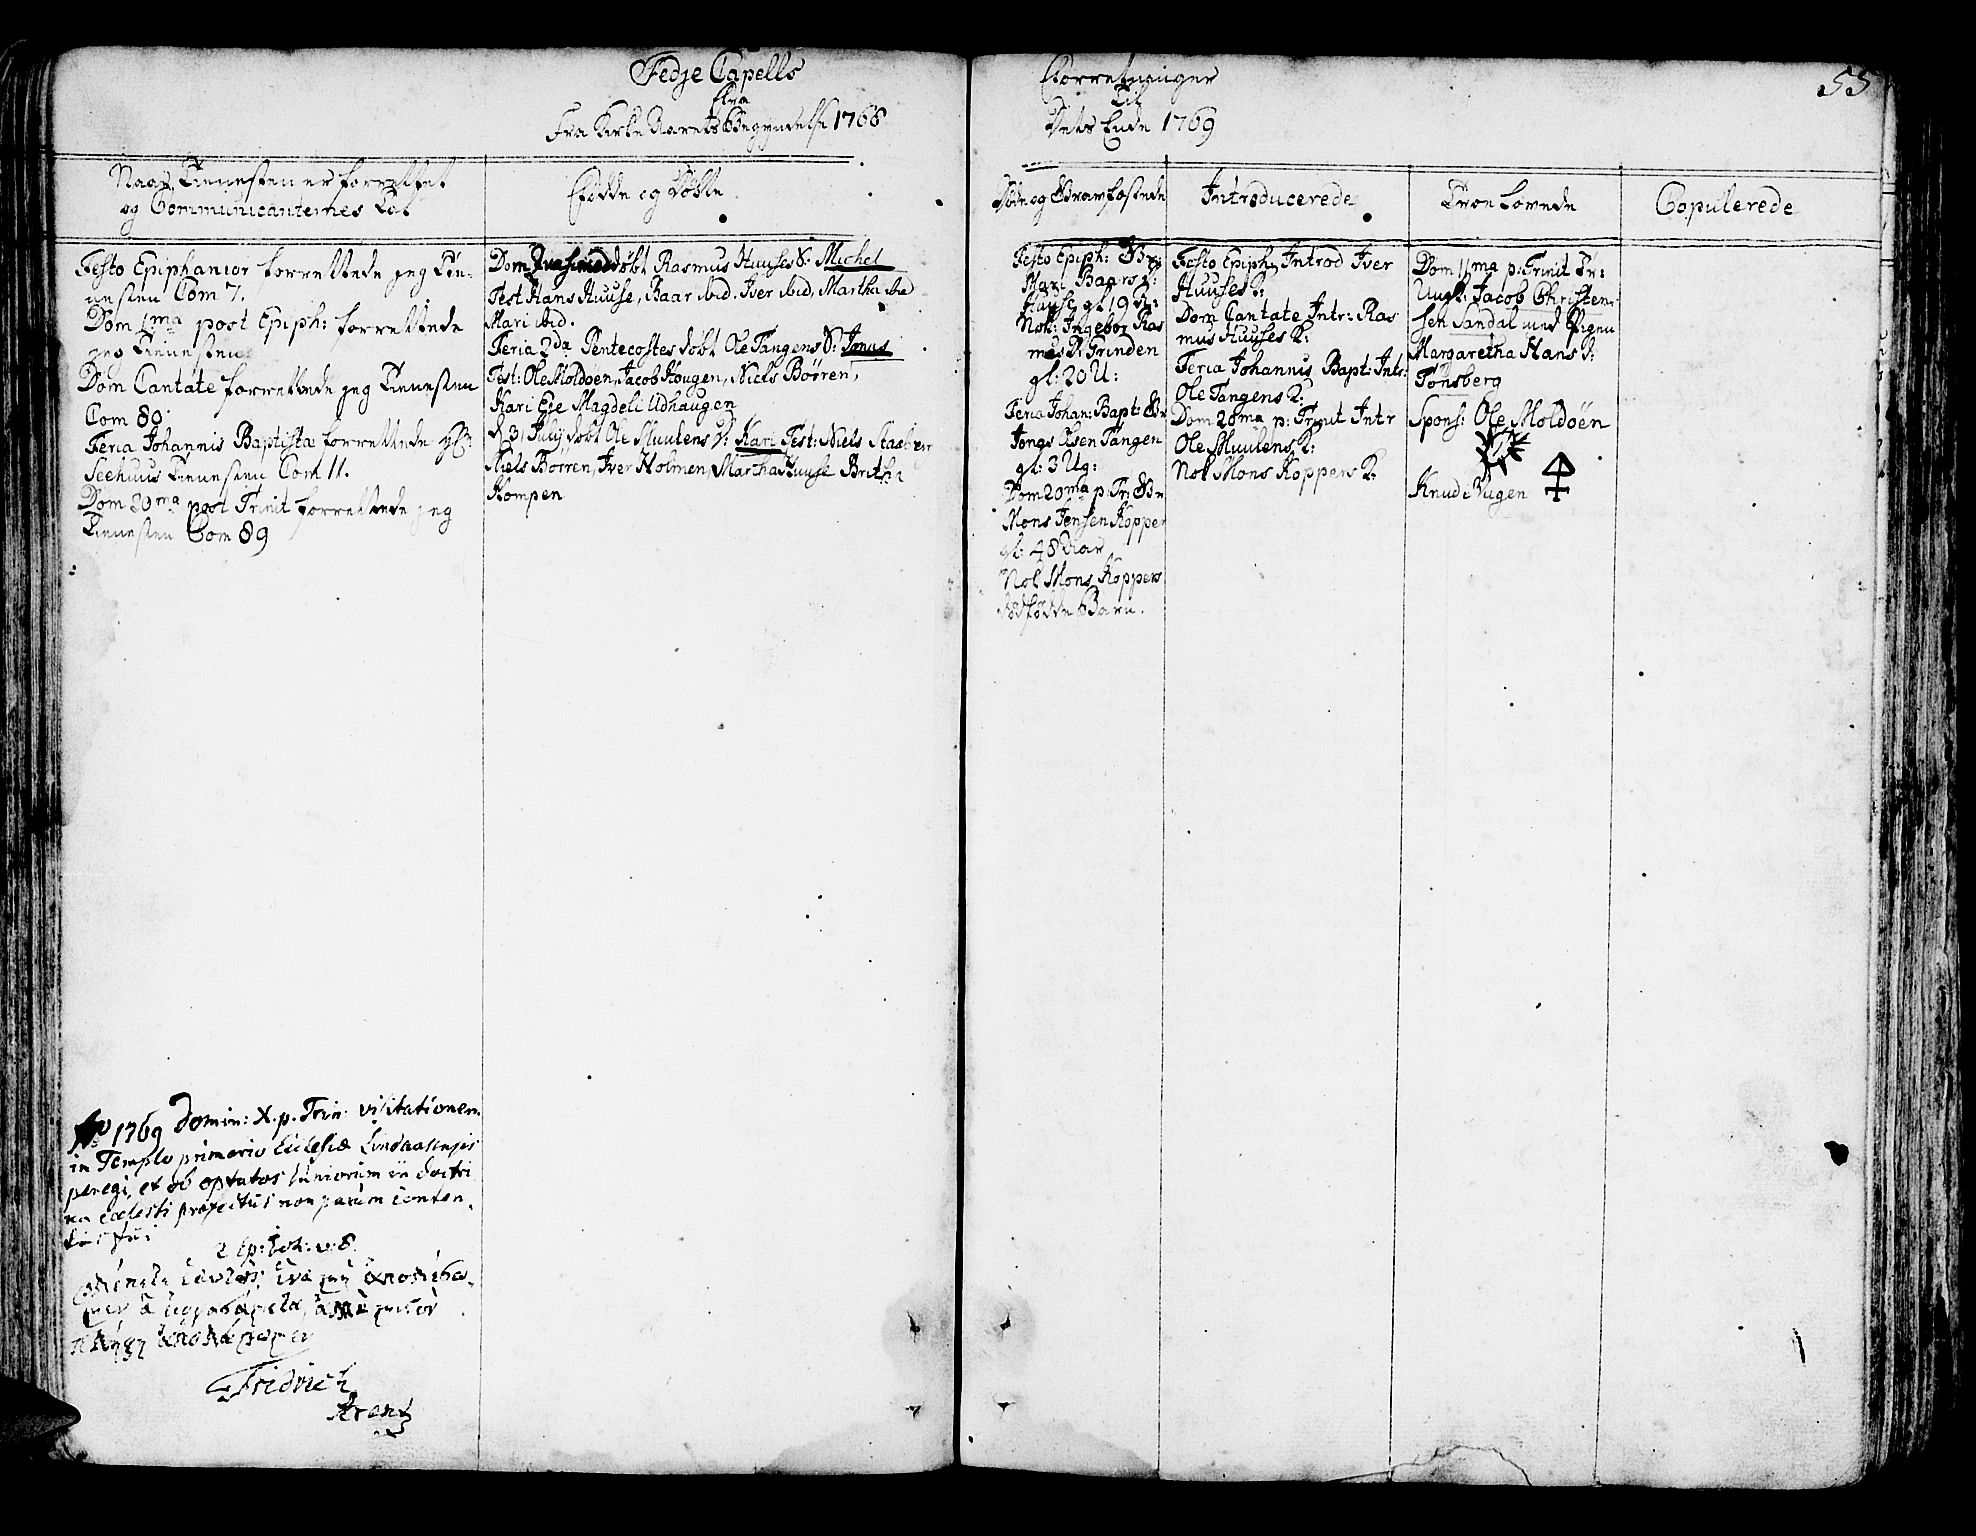 Fedje Capells
fra
Fra Kirke Aarets Begyndelse 1768
Forretninger
Til
Dets Ende 1769
55
Naar Tienesten er forrettet
og Communicanternes Tal
Fødde og Døbte
Døde og Gravfæstede
Introducerede
Troe Lovede
Copulerede
Festo Epiphanior forrettede jeg Tie-
nesten Com 7.
Dom 1ma post Epiph: forrettede
jeg Tienesten
Dom Cantate forrettede jeg Tienesten
Com 80.
Feria Johannis Baptistæ forrettede Hr:
Seehuus Tienesten Com 11.
Dom 20ma post Trinit forrettede jeg
Tienesten Com 89
Dom Qvasimod døbt Rasmus Huuses S: Michel
Test Hans Huuse, Baar ibid. Iver ibid, Martha ibid
Mari ibid.
Feria 2da Pentecostes døbt Ole Tangens S: Jonas
Test: Ole Moldøen, Jacob Hougen, Niels Børren,
Kari Eie Magdeli Udhaugen
d 31 July døbt Ole Muulens D: Kari Test: Niels
Niels Børren, Iver Holmen, Martha Huuse Britha
Kompen
Festo Epiph: Gr:
Mari Baars D:
Huuse gl: 19 U:
Nok: Ingebor Ras
mus D: Grinden
gl: 20 U:
Feria Johan: Bapt: Gr
Jonas Olsen Tangen
gl: 3 Ug:
Dom 20ma p: Tr: Gr
Mons Jensen Kopper
gl: 48 Aar
Nok Mons Koppers
dødfødde Barn.
Festo Epiph Introd Iver
Huuses K:
Dom Cantate Intr: Ras
mus Huuses K:
Feria Johannis Bapt: Intr:
Ole Tangens K:
Dom 20ma p: Trinit Intr
Ole Muulens K:
Nok Mons Koppers K:
Dom 11ma p: Trinit Tr:
Ungk: Jacob Christen-
sen Sandal med Pigen
Margaretha Hans D:
Tønsberg
Spons: Ole Moldøen
Knud Vugen
Ao 1769 Domin: X. p. Trin: visitationem
in Templo primario Ecclesiæ Lindaasensis
peregi, et ob optatos Juniorum in doctri
na coelesti profectus non parum conten-
tus fui
2 Ep: Joh: v: 8.
βλέπετε ἑαυτοὺς, ἵνα μὴ ἀπολέσω-
μεν ἃ εἰργασάμεθα, ἀλλὰ μισθὸν
πλήρη ἀπολάβωμεν
Fridrich
Arentz